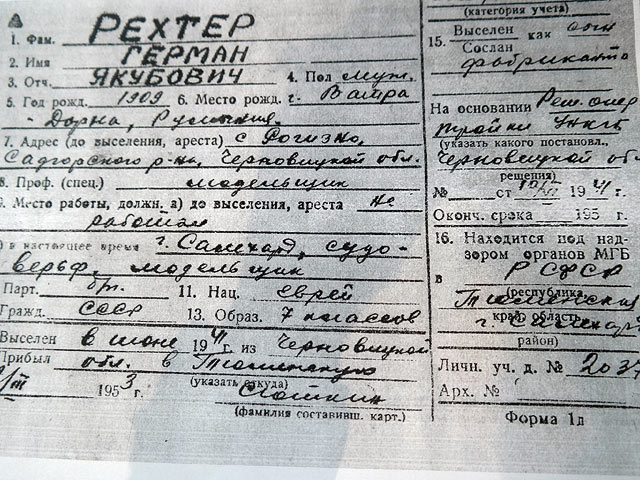 1. Фам. РЕХТЕР
2. Имя ГЕРМАН
3. Отч. ЯКУБОВИЧ 4. Пол муж.
5. Год рожд. 1909 6. Место рожд. г. Ватра
Дорна, Румыния.
7. Адрес (до выселения, ареста) с Рогизно,
Садгорского р-на, Черновицкой обл.
8. Проф. (спец.) модельщик
9. Место работы, должн. а) до выселения, ареста не
работал
) в настоящее время г. Салехард, судо-
верфь, модельщик
Парт. б/п. 11. Нац. еврей
Гражд. СССР 13. Образ. 7 классов
Выселен в июне 1941 г. из Черновицкой
Прибыл обл. в Тюменскую
(указать откуда)
1953 г.
(фамилия составивш. карт.)
(категория учета)
15. Выселен как
Сослан
фабриканта
На основании Реш. опер
тройки УНКГБ
(указать какого постановл.,
Черновицкой об
решения)
№ от 1941 г.
Оконч. срока 195 г.
16. Находится под над-
зором органов МГБ
в РСФСР
(республика,
Тюменская
край, область,
г. Салехард
район)
Личн. уч. д. № 2037
Арх. №
Форма 1л